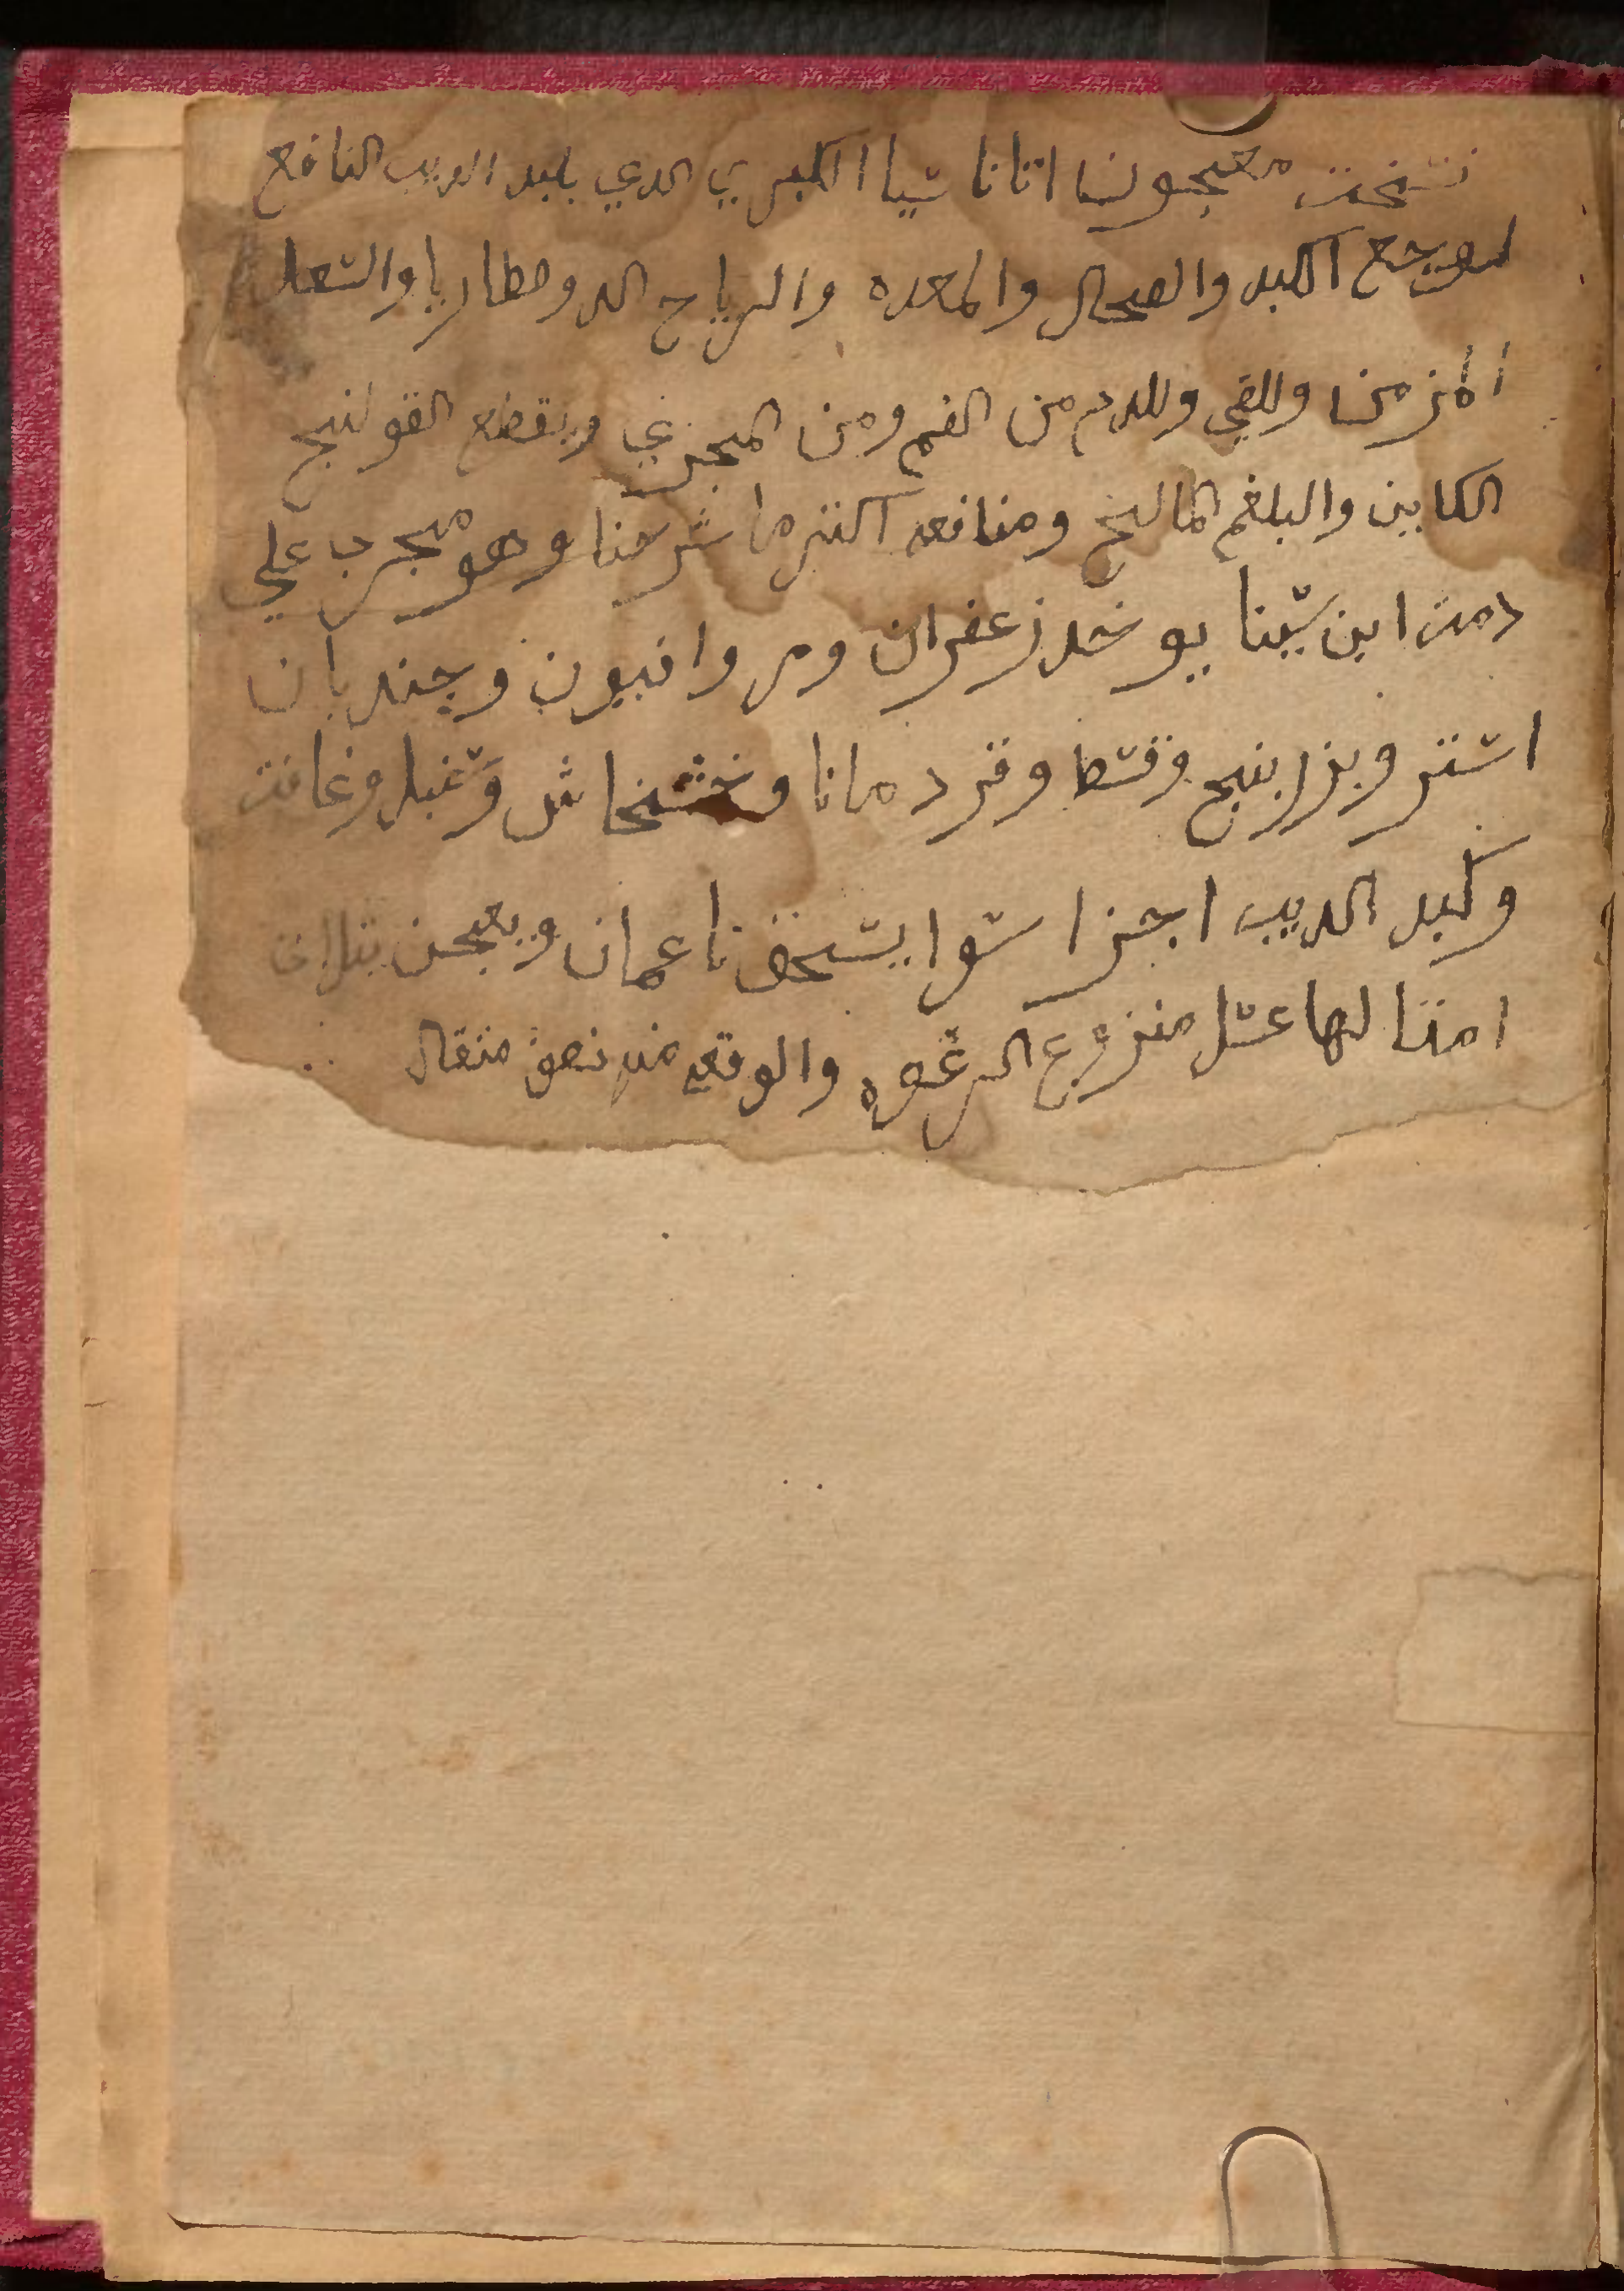 نسخت معجون اتاناسيا الكبري الدي بكبد الديب النافع
لوجع الكبد والصحال والمعده والرياح الدوصطاريا والسعل
المزمن وللقي وللدم من الفم ومن المجري ويقطع القولنج
الكاين والبلغم المالح ومنافعه اكتر ما شرحنا وهو مجرب علي
دمت ابن سينا يوخد زعفران ومر وافيون وجندبان
استر وبزر بنج وقسط وقردمانا وخشخاش وسنبل وغافت
وكبد الديب اجزا سوا يسحق ناعمان ويعجن بتلات
امتالها عسل منزوع الرغوه والوقعه منه نصف متقال